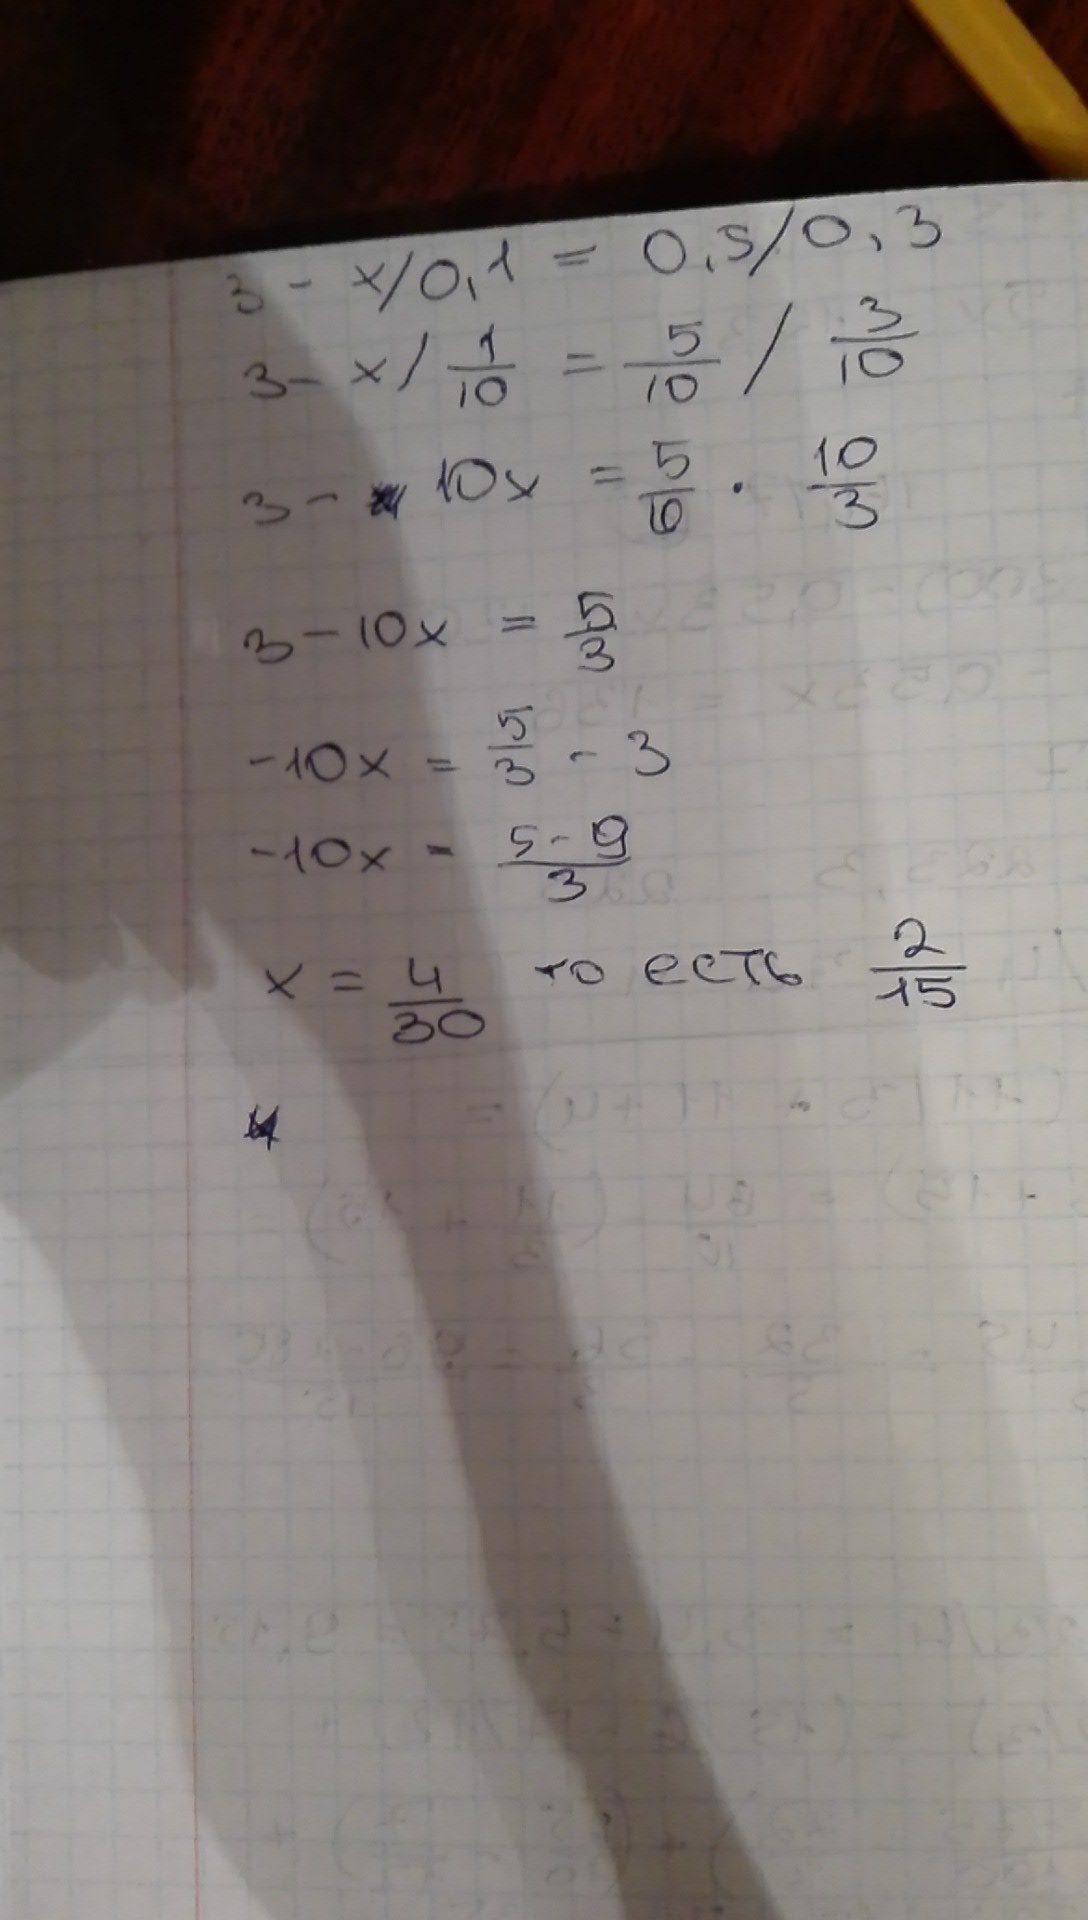 3 - x/0,1 = 0,5/0,3
3 - x/ 1/10 = 5/10 / 3/10
3 - 10x = 5/6 · 10/3
3 - 10x = 5/3
-10x = 5/3 - 3
-10x = (5 - 9)/3
x = 4/30 то есть 2/15